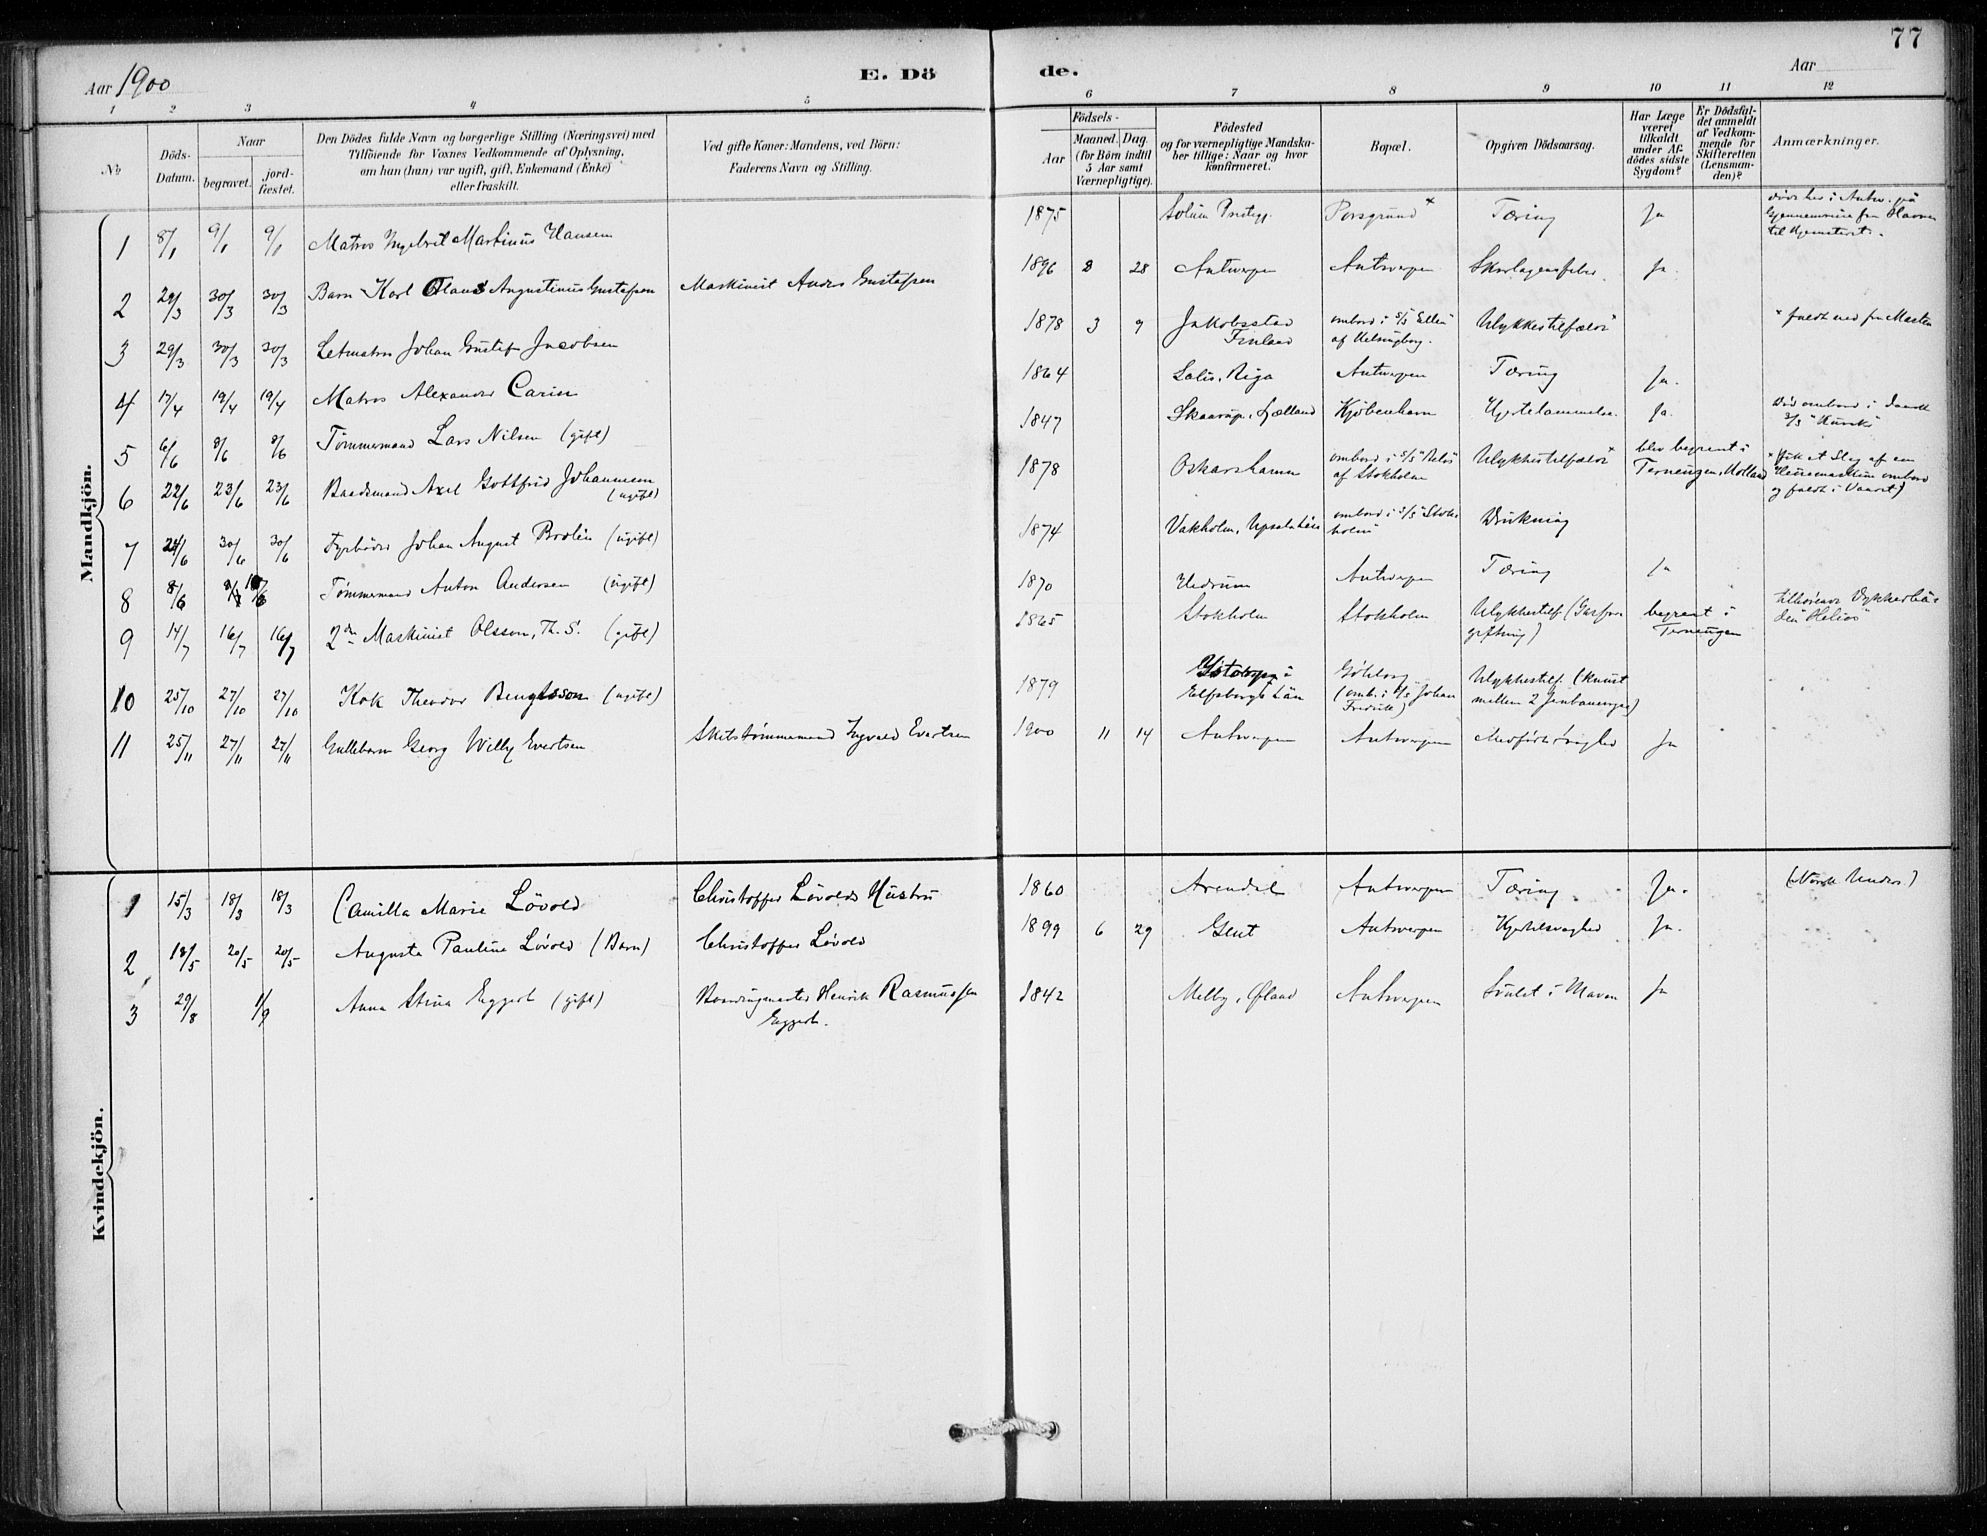 77
Aar 1900
E. Dö
de.
Aar
1 2 3 4 5 6 7 8 9 10 11 12
No
Döds-
Datum.
Naar
begravet.
jord-
fæstet.
Den Dödes fulde Navn og borgerlige Stilling (Næringsvei) med
Tilföiende for Voxnes Vedkommende af Oplysning,
om han (hun) var ugift, gift, Enkemand (Enke)
eller fraskilt.
Ved gifte Koner: Mandens, ved Börn:
Faderens Navn og Stilling.
Födsels-
Aar
Maaned. Dag.
(for Börn indtil
5 Aar samt
Værnepligtige).
Födested
og for værnepligtige Mandska-
ber tillige: Naar og hvor
konfirmeret.
Bopæl.
Opgiven Dödsaarsag.
Har Læge
været
tilkaldt
under Af-
dödes sidste
Sygdom?
Er Dödsfal-
det anmeldt
af Vedkom-
mende for
Skifteretten
(Lensman-
den)?
Anmærkninger.
Mandkjön.
1 8/1 9/1 9/1 Matros Ingebret Martinus Hansen 1875 Solum Prstegj. Porsgrund x Tæring Ja
i Antw. på
Gjennemreise fra Havren
til
2 29/3 30/3 30/3 Barn Karl Olaus Augustinus Gustafsen Maskinist Anders Gustafsen 1896 8 28 Antwerpen Antwerpen Skarlagensfeber Ja
3 29/3 30/3 30/3 Letmatros Johan Gustaf Jacobsen 1878 3 9 Jakobsstad
Finland
ombord i S/S "Ellen"
af Helsingborg.
Ulykkestilfælde x
x faldt ned fra Masten
4 17/4 19/4 19/4 Matros Alexander Carin 1864 Salis, Riga Antwerpen Tæring Ja.
5 6/6 8/6 8/6 Tømmermand Lars Nilsen (gift) 1847 Skaarup, Sjælland Kjöbenhavn Hjertelammelse Ja.
Död ombord i dansk
S/S "Kursk"
6 22/6 23/6 23/6 Baadsmand Axel Gottfrid Johannesen
(ugift)
1878 Oskarshamn ombord i S/S
af Stokholm
Ulykkestilfælde x
blev begravet i
Terneuzen, Holland
x fik et Slag af en
Heisemaskine ombord
og faldt i Vandet)
7 24/6 30/6 30/6 Fyrböder Johan August Brolin (ugift) 1874 Vakholm, Upsala Län ombord i S/S "Stok-
holm"
Drukning
8 8/6 Tömmermand Anton Andersen (ugift) 1870 Hedrum Antwerpen Tæring Ja
9 14/7 16/7 16/7 2den Maskinist Olsson, Th. S. (gift) 1865 Stokholm Stokholm Ulykkestilf (Gasfor-
giftning)
begravet i
Terneuzen
tilhörende Dykkerbåd
den "Helios"
10 25/10 27/10 27/10 Kok Theodor Bengtsson (ugift) 1879
Elfsborgs Län
Göteborg
(omb. i S/S Johan
Fredrik)
Ulykkestilf. (knust
mellem 2 Jernbanevogne)
11 25/11 27/11 27/11 Guttebarn Georg Willy Evertsen Skibstømmermand Ingvald Evertsen 1900 11 14 Antwerpen Antwerpen Medfödt svaghed Ja
Kvindekjön.
1 15/3 18/3 18/3 Camilla Marie Lövold Christoffer Lövolds Hustru 1860 Arendal Antwerpen Tæring Ja. (Norsk Unders.)
2 18/5 20/5 20/5 Augusta Pauline Lövold (Barn) Christoffer Lövold 1899 6 29 Gent Antwerpen Hjertesvaghed Ja.
3 29/8 1/9 Anna Stina Eggert (gift) Boardingmaster Henrik Rasmussen
Eggert.
1842 Melby, Öland Antwerpen Svulst i Maven Ja